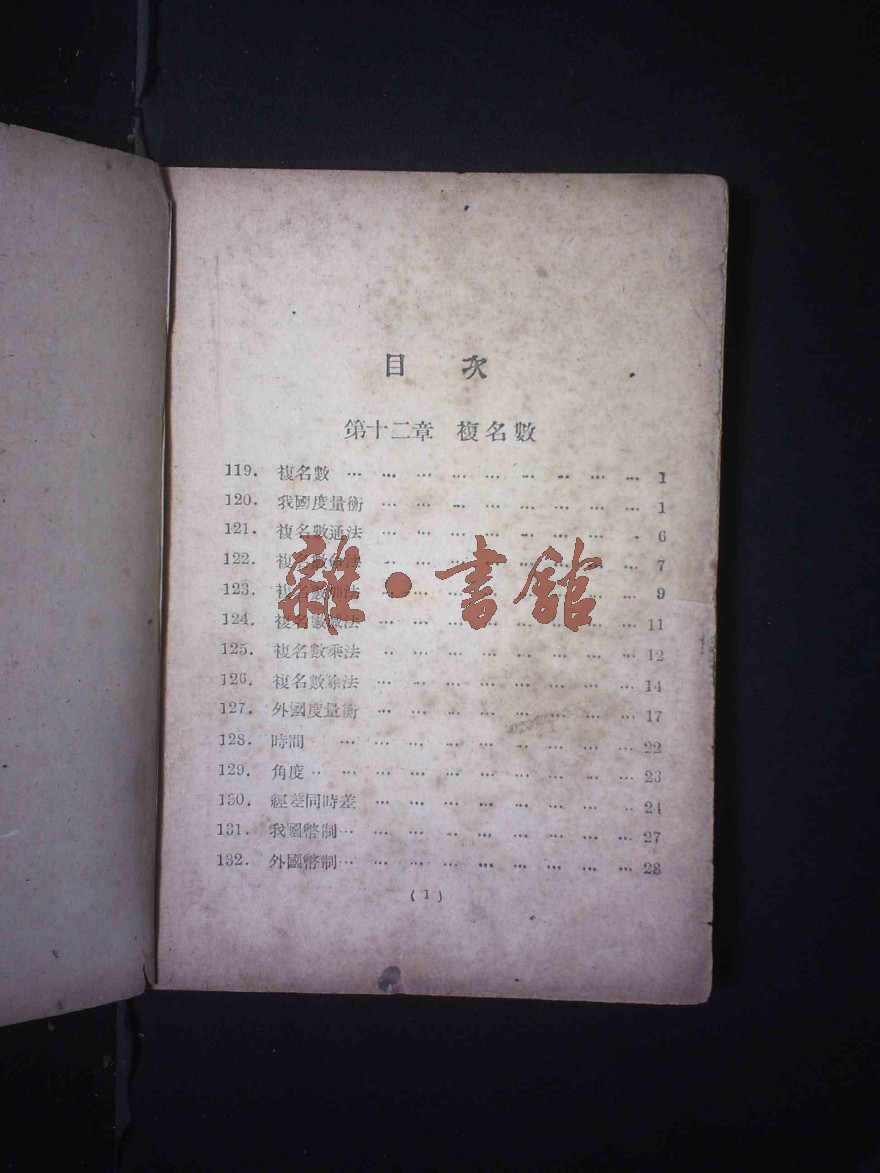 目 次
第十二章 複名數
119. 複名數 … … … … … … … … … 1
120. 我國度量衡 … … … … … … … … 1
121. 複名數通法 … … … … … … … . 6
122. 複名數命法 … … … … … … … … 7
123. 複名數加法 … … … … … … … … 9
124. 複名數減法 … … … … … … … … 11
125. 複名數乘法 … … … … … … … … 12
126. 複名數除法 … … … … … … … … 14
127. 外國度量衡 … … … … … … … … 17
128. 時間 … … … … … … … … … 22
129. 角度 … … … … … … … … … … 23
130. 經差同時差 … … … … … … … … 24
131. 我國幣制 … … … … … … … … … 27
132. 外國幣制 … … … … … … … … … 28
雜·書館
(1)